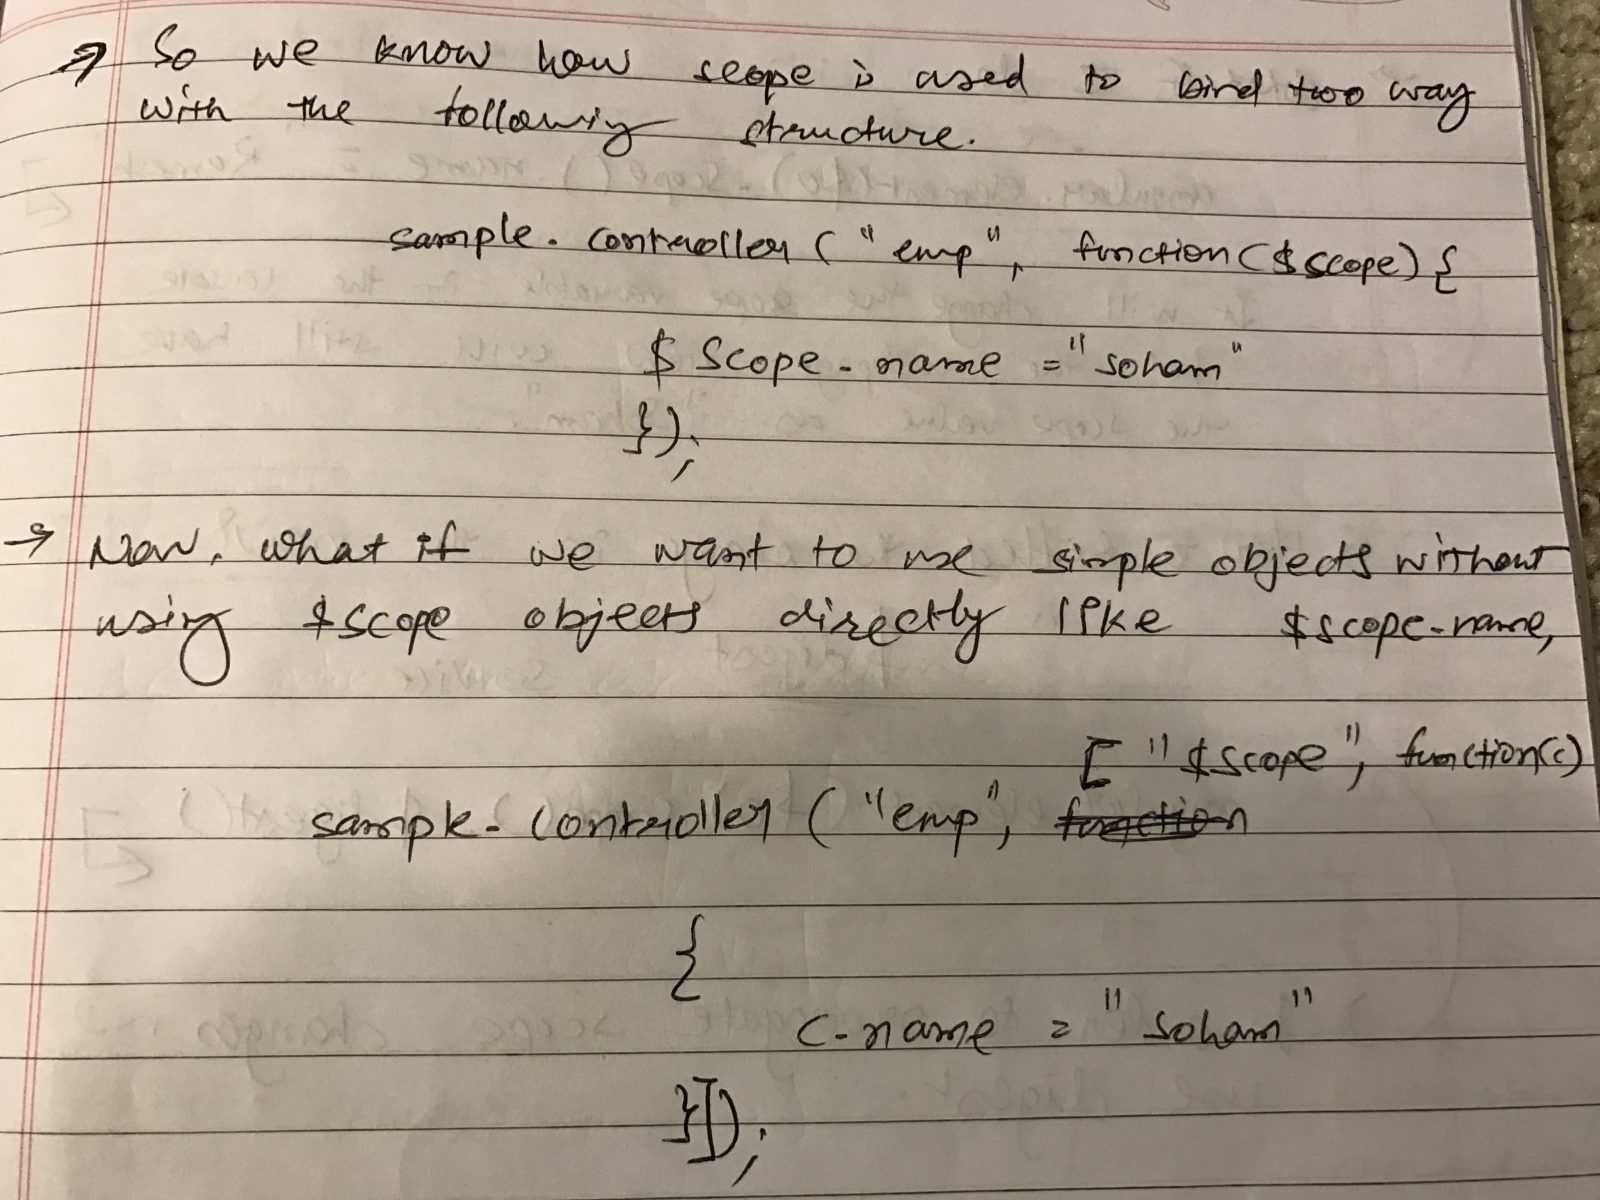 → So we know how scope is used to bind two way
with the following structure.
sample.controller("emp", function($scope){
$scope.name = "soham"
});
→ Now, what if we want to use simple objects without
using $scope objects directly like $scope.name,
["$scope", function(c)
sample.controller("emp", function
{
c.name = "soham"
}]);